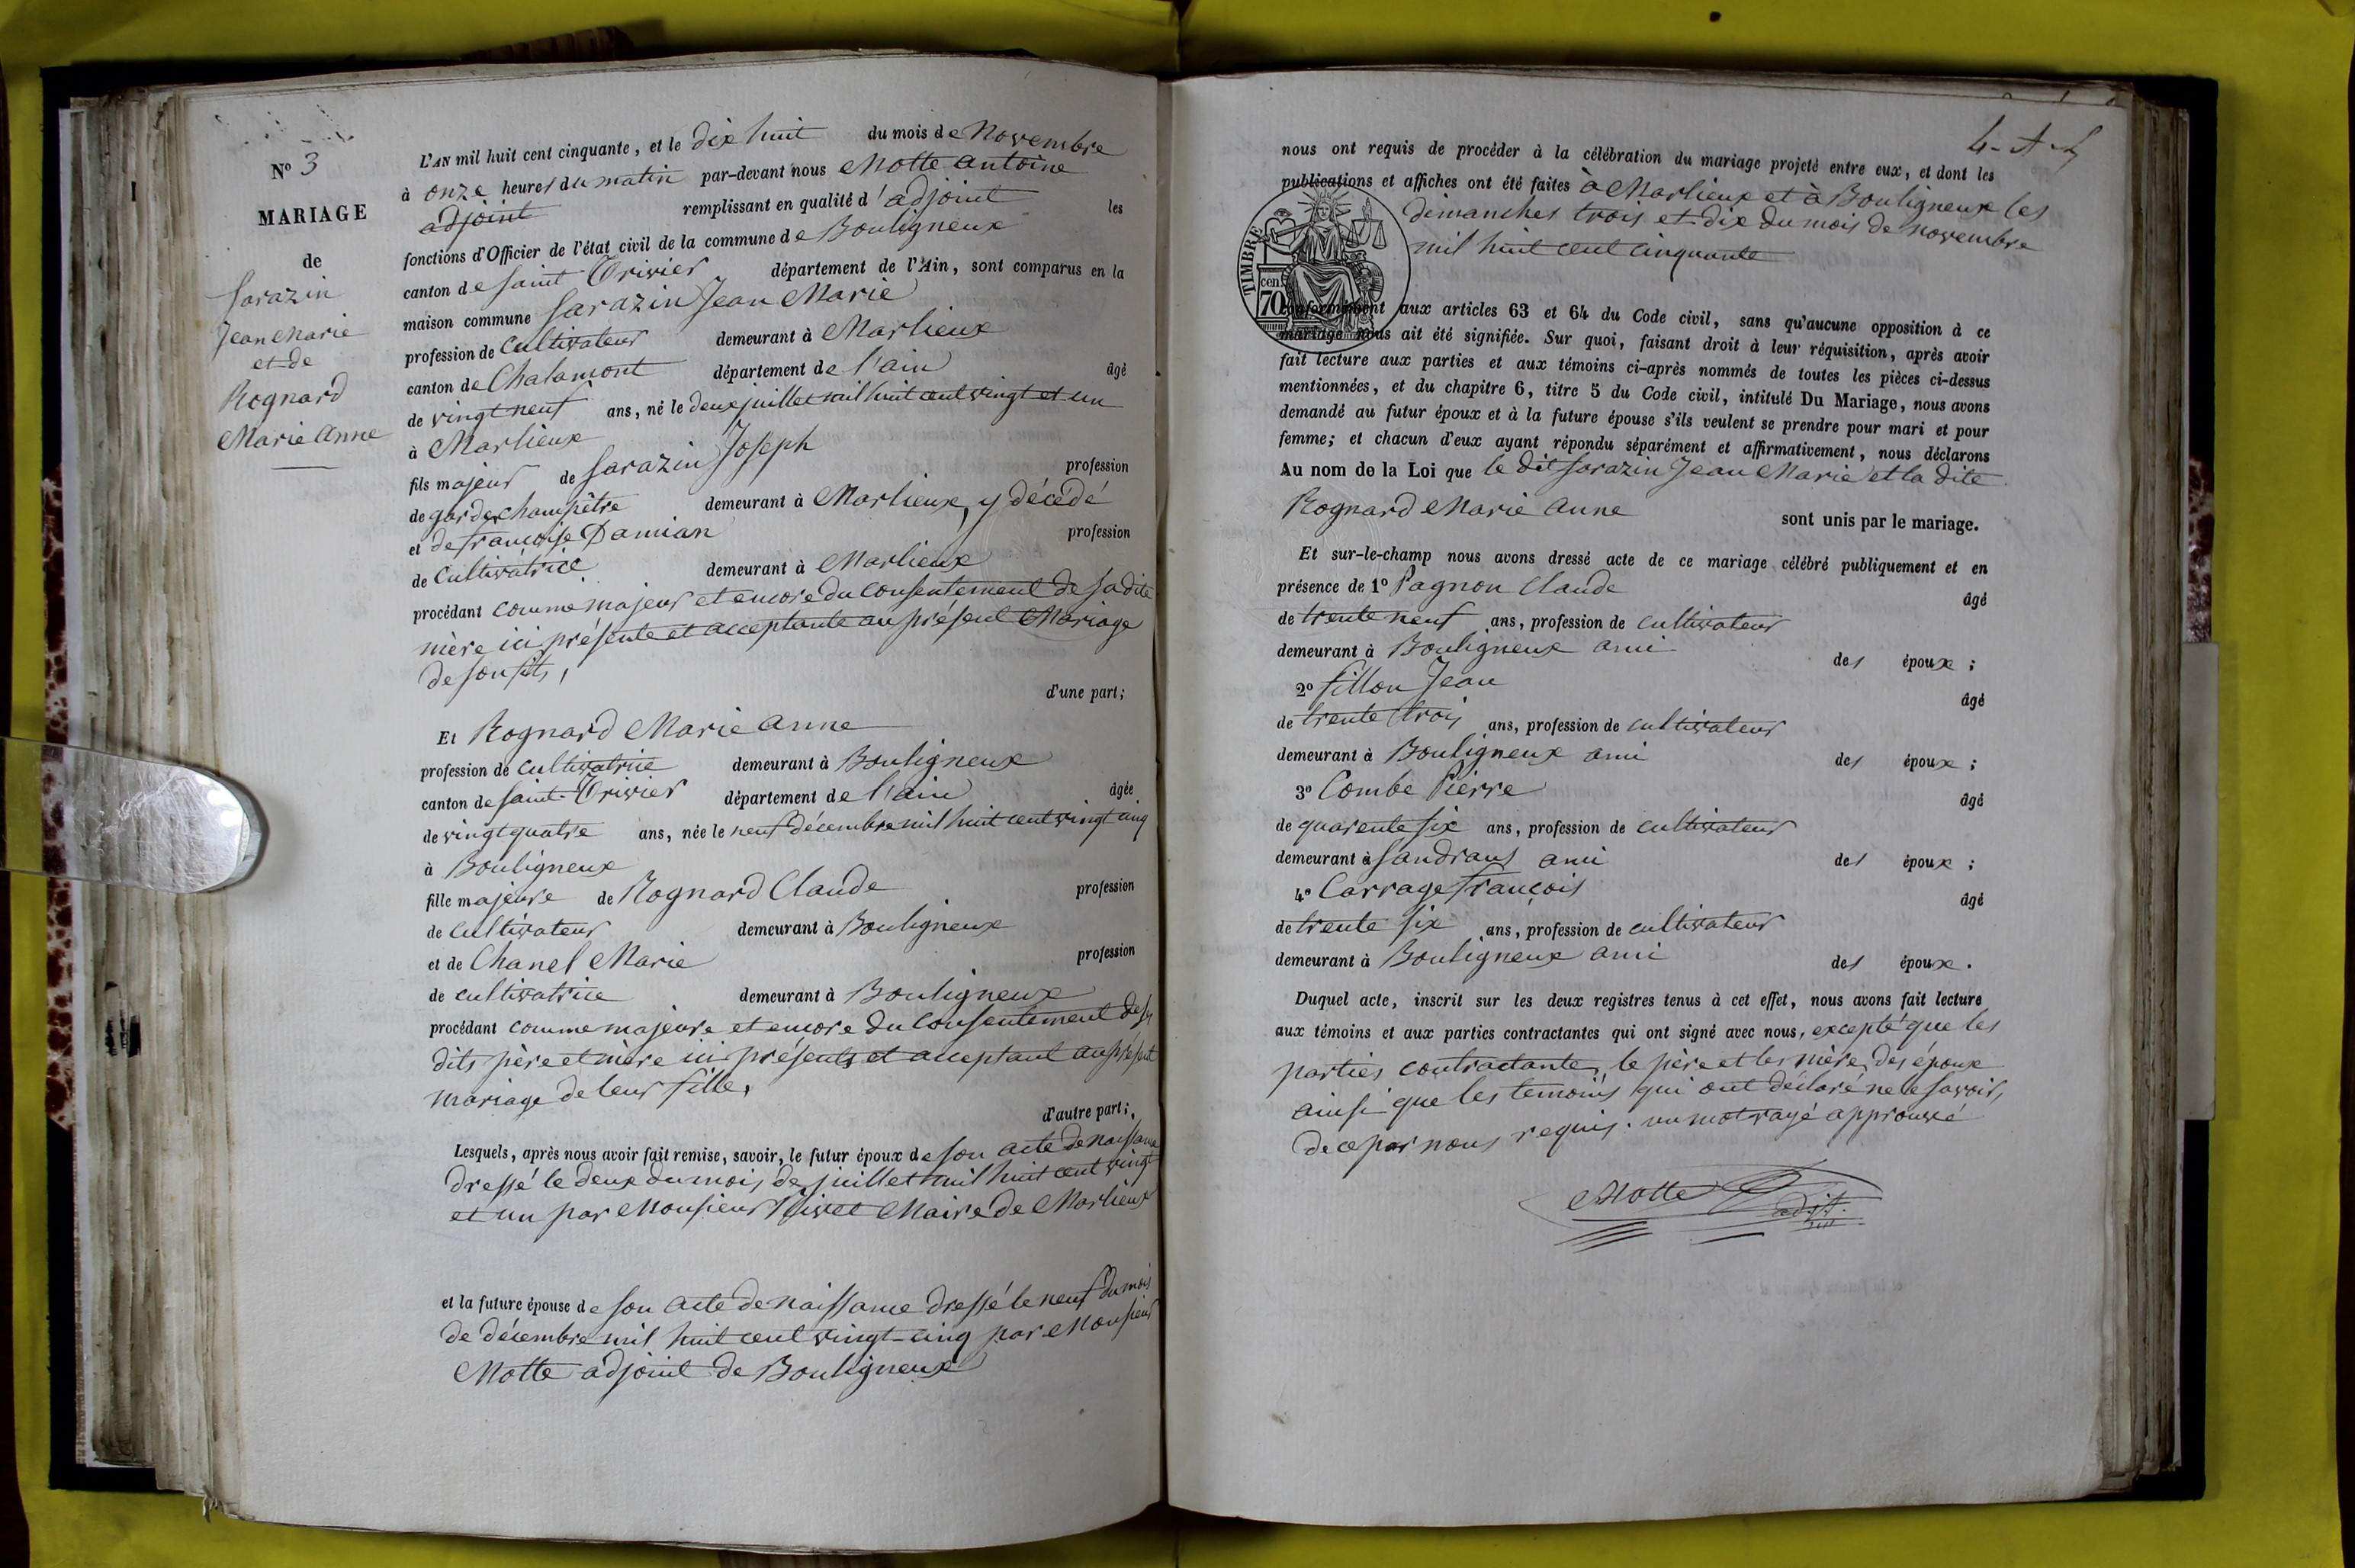 N° 3
MARIAGE
de
Sarazin
Jean Marie
et de
Rognard
Marie Anne
L'AN mil huit cent cinquante, et le dix huit du mois de Novembre
à onze heures du matin par-devant nous Motte Antoine
adjoint remplissant en qualité d'adjoint les
fonctions d'Officier de l'état civil de la commune de Bouligneux
canton de Saint Trivier département de l'Ain, sont comparus en la
maison commune Sarazin Jean Marie
profession de Cultivateur demeurant à Marlieux
canton de Chalamont département de l'ain âgé
de vingt neuf ans, né le deux juillet mil huit cent vingt et un
à Marlieux
fils majeur de Sarazin Joseph profession
de garde champêtre demeurant à Marlieux, y décédé
et de françoise Damian profession
de Cultivatrice demeurant à Marlieux
procédant comme majeur et encore du consentement de sa dite
mère ici présente et acceptante au présent Mariage
de son fils,
d'une part;
Et Rognard Marie Anne
profession de cultivatrice demeurant à Bouligneux
canton de Saint-Trivier département de l'ain âgée
de vingt quatre ans, née le neuf décembre mil huit cent vingt cinq
à Bouligneux
fille majeure de Rognard Claude profession
de cultivateur demeurant à Bouligneux
et de Chanel Marie profession
de cultivatrice demeurant à Bouligneux
procédant comme majeure et encore du consentement de ses
dits père et mère ici présents et acceptant au présent
mariage de leur fille,
d'autre part;
Lesquels, après nous avoir fait remise, savoir, le futur époux de son acte de naissance
dressé le deux du mois de juillet mil huit cent vingt
et un par Monsieur Maire de Marlieux
et la future épouse de son acte de naissance dressé le neuf du mois
de décembre mil huit cent vingt-cinq par Monsieur
Motte adjoint de Bouligneux
nous ont requis de procéder à la célébration du mariage projeté entre eux, et dont les
publications et affiches ont été faites à Marlieux et à Bouligneux les
dimanches trois et dix du mois de novembre
mil huit cent cinquante
TIMBRE
70 cen.
conformément aux articles 63 et 64 du Code civil, sans qu'aucune opposition à ce
mariage nous ait été signifiée. Sur quoi, faisant droit à leur réquisition, après avoir
fait lecture aux parties et aux témoins ci-après nommés de toutes les pièces ci-dessus
mentionnées, et du chapitre 6, titre 5 du Code civil, intitulé Du Mariage, nous avons
demandé au futur époux et à la future épouse s'ils veulent se prendre pour mari et pour
femme; et chacun d'eux ayant répondu séparément et affirmativement, nous déclarons
Au nom de la Loi que le dit Sarazin Jean Marie et la dite
Rognard Marie Anne sont unis par le mariage.
Et sur-le-champ nous avons dressé acte de ce mariage célébré publiquement et en
présence de 1° Pagnon Claude âgé
de trente neuf ans, profession de cultivateur
demeurant à Bouligneux ami des époux;
2° fillon Jean âgé
de trente trois ans, profession de cultivateur
demeurant à Bouligneux ami des époux;
3° Combe Pierre âgé
de quarente six ans, profession de cultivateur
demeurant à Sandrans ami des époux;
4° Carrage françois âgé
de trente six ans, profession de cultivateur
demeurant à Bouligneux ami des époux.
Duquel acte, inscrit sur les deux registres tenus à cet effet, nous avons fait lecture
aux témoins et aux parties contractantes qui ont signé avec nous, excepté que les
parties contractantes, le père et les mères des époux
ainsi que les témoins qui ont déclaré ne le savoir,
de ce par nous requis. un mot rayé approuvé
Motte adjt.